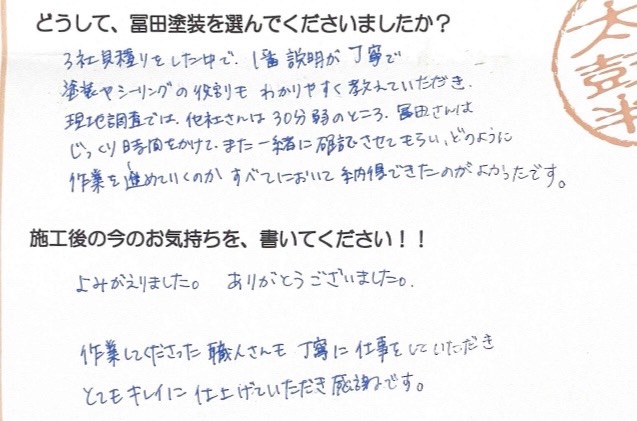 どうして、冨田塗装を選んでくださいましたか？
3社見積りをした中で、1番説明が丁寧で
塗装やシーリングの役割も わかりやすく教えていただき、
現地調査では、他社さんは30分弱のところ、冨田さんは
じっくり時間をかけて、また一緒に確認させてもらい、どのように
作業を進めていくのか すべてにおいて納得できたのがよかったです。
施工後の今のお気持ちを、書いてください！！
よみがえりました。 ありがとうございました。
作業してくださった職人さんも 丁寧に仕事をしていただき
とてもキレイに仕上げていただき感謝です。
太鼓